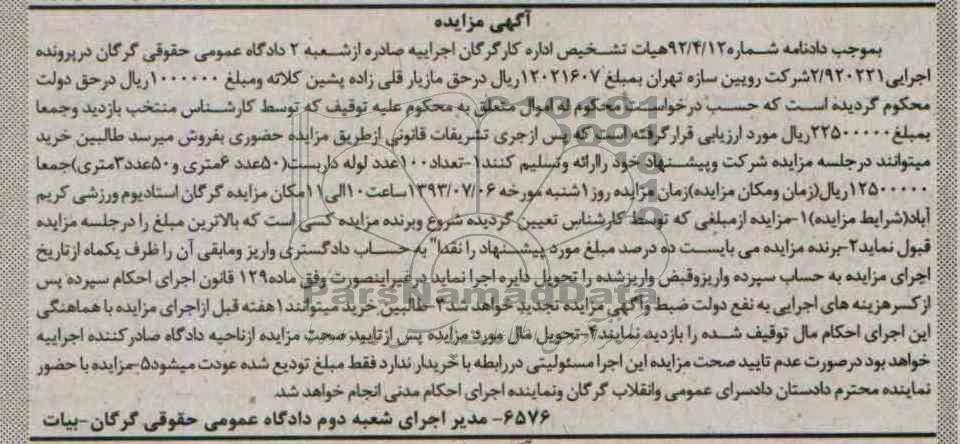 آگهی مزایده
بموجب دادنامه شماره۹۲/۴/۱۲هیات تشخیص اداره کارگرگان اجراییه صادره ازشعبه ۲ دادگاه عمومی حقوقی گرگان درپرونده
اجرایی۲/۹۲۰۲۲۱شرکت رویین سازه تهران بمبلغ ۱۲۰۲۱۶۰۷ریال درحق مازیار قلی زاده پشین کلاته ومبلغ ۱۰۰۰۰۰۰ریال درحق دولت
محکوم گردیده است که حسب درخواست محکوم له اموال متعلق به محکوم علیه توقیف که توسط کارشناس منتخب بازدید وجمعا
بمبلغ۲۲۵۰۰۰۰۰ریال مورد ارزیابی قرارگرفته است که پس ازجری تشریفات قانونی ازطریق مزایده حضوری بفروش میرسد طالبین خرید
میتوانند درجلسه مزایده شرکت وپیشنهاد خود راارائه وتسلیم کنند۱-تعداد۱۰۰عدد لوله داربست(۵۰عدد ۶متری و۵۰عدد۳متری)جمعا
۱۲۵۰۰۰۰۰ریال(زمان ومکان مزایده)زمان مزایده روز۱شنبه مورخه ۱۳۹۳/۰۷/۰۶ساعت۱۰الی۱۱مکان مزایده گرگان استادیوم ورزشی کریم
آباد(شرایط مزایده)۱-مزایده ازمبلغی که توسط کارشناس تعیین گردیده شروع وبرنده مزایده کسی است که بالاترین مبلغ را درجلسه مزایده
قبول نماید۲-برنده مزایده می بایست ده درصد مبلغ مورد پیشنهاد را نقدا" به حساب دادگستری واریز ومابقی آن را ظرف یکماه ازتاریخ
اجرای مزایده به حساب سپرده واریزوقبض واریزشده را تحویل دایره اجرا نماید درغیراینصورت وفق ماده۱۲۹ قانون اجرای احکام سپرده پس
ازکسرهزینه های اجرایی به نفع دولت ضبط وآگهی مزایده تجدید خواهد شد۳-طالبین خرید میتوانند۱هفته قبل ازاجرای مزایده با هماهنگی
این اجرای احکام مال توقیف شده را بازدید نمایند۴-تحویل مال مورد مزایده پس ازتایید صحت مزایده ازناحیه دادگاه صادرکننده اجراییه
خواهد بود درصورت عدم تایید صحت مزایده این اجرا مسئولیتی دررابطه با خریدار ندارد فقط مبلغ تودیع شده عودت میشود۵-مزایده با حضور
نماینده محترم دادستان دادسرای عمومی وانقلاب گرگان ونماینده اجرای احکام مدنی انجام خواهد شد.
۶۵۷۶- مدیر اجرای شعبه دوم دادگاه عمومی حقوقی گرگان-بیات
ParsNamadData